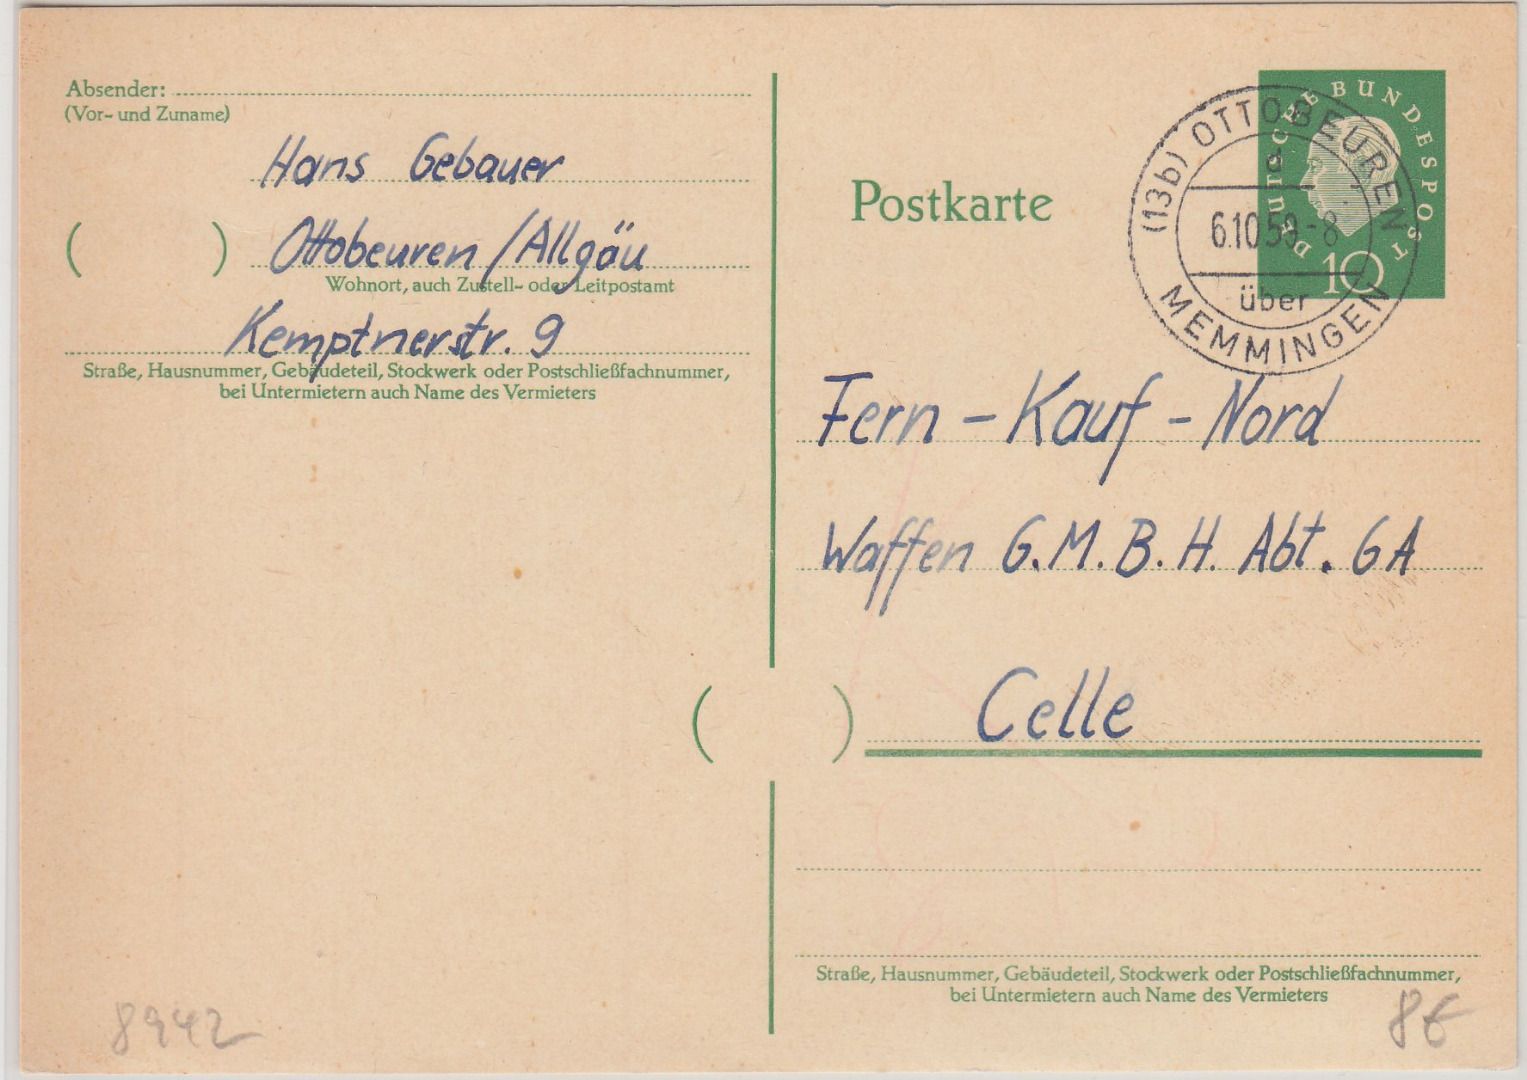 Absender:
(Vor- und Zuname)
Hans Gebauer
( ) Ottobeuren / Allgäu
Wohnort, auch Zustell- oder Leitpostamt
Kemptnerstr. 9
Straße, Hausnummer, Gebäudeteil, Stockwerk oder Postschließfachnummer,
bei Untermietern auch Name des Vermieters
Postkarte
DEUTSCHE BUNDESPOST
10
(13b) OTTOBEUREN
d
6.10.59.-8
über
MEMMINGEN
Fern - Kauf - Nord
Waffen G.M.B.H. Abt. GA
( ) Celle
Straße, Hausnummer, Gebäudeteil, Stockwerk oder Postschließfachnummer,
bei Untermietern auch Name des Vermieters
8942
8€